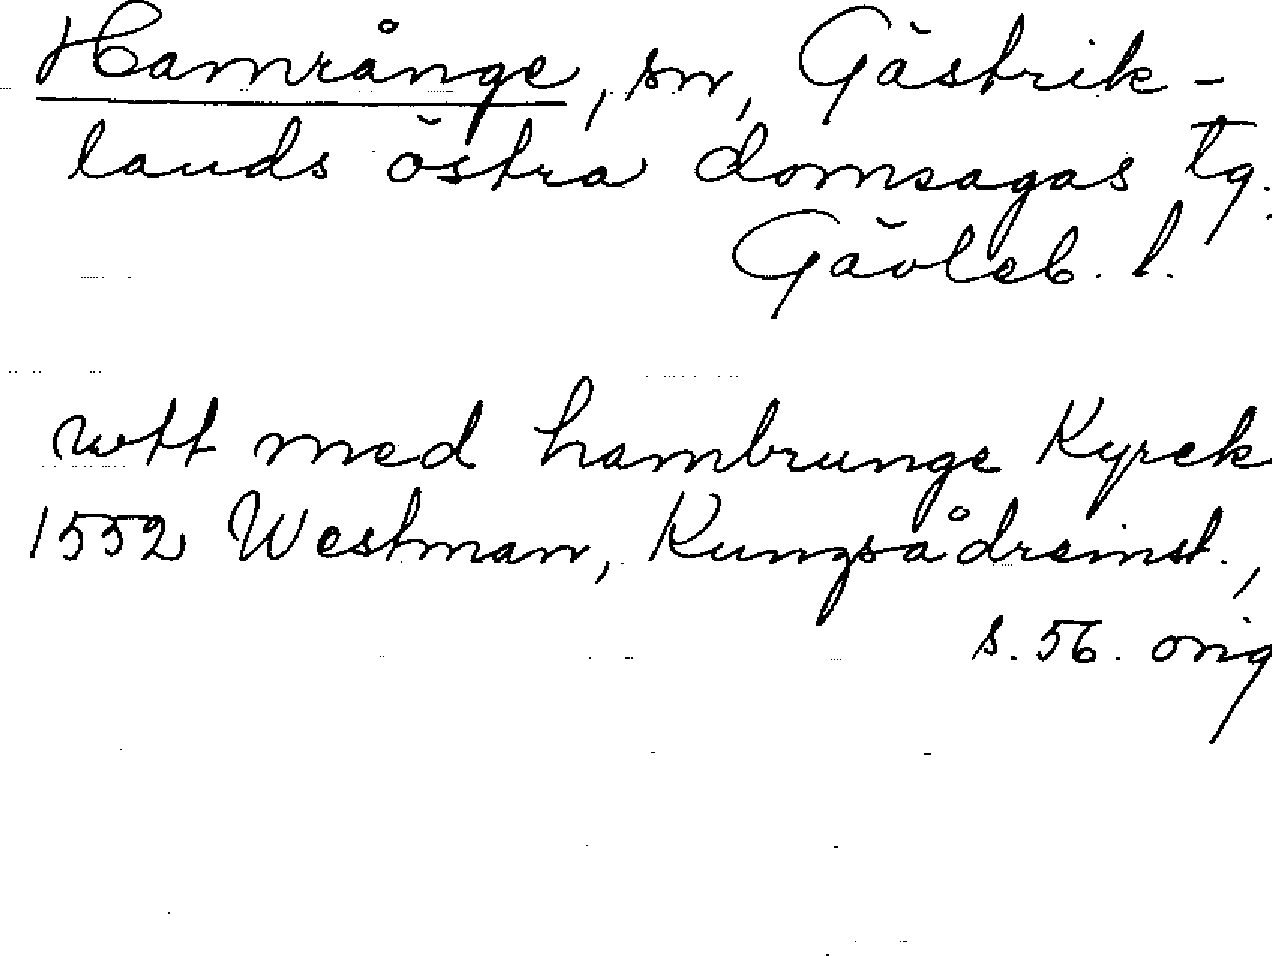 Hamrånge, sn, Gästrik-
lands östra domsagas tg.
Gävleb. l.
wtt med hambrunge Kyrek
1552 Westman, Kungsådreinst.,
s. 56. orig